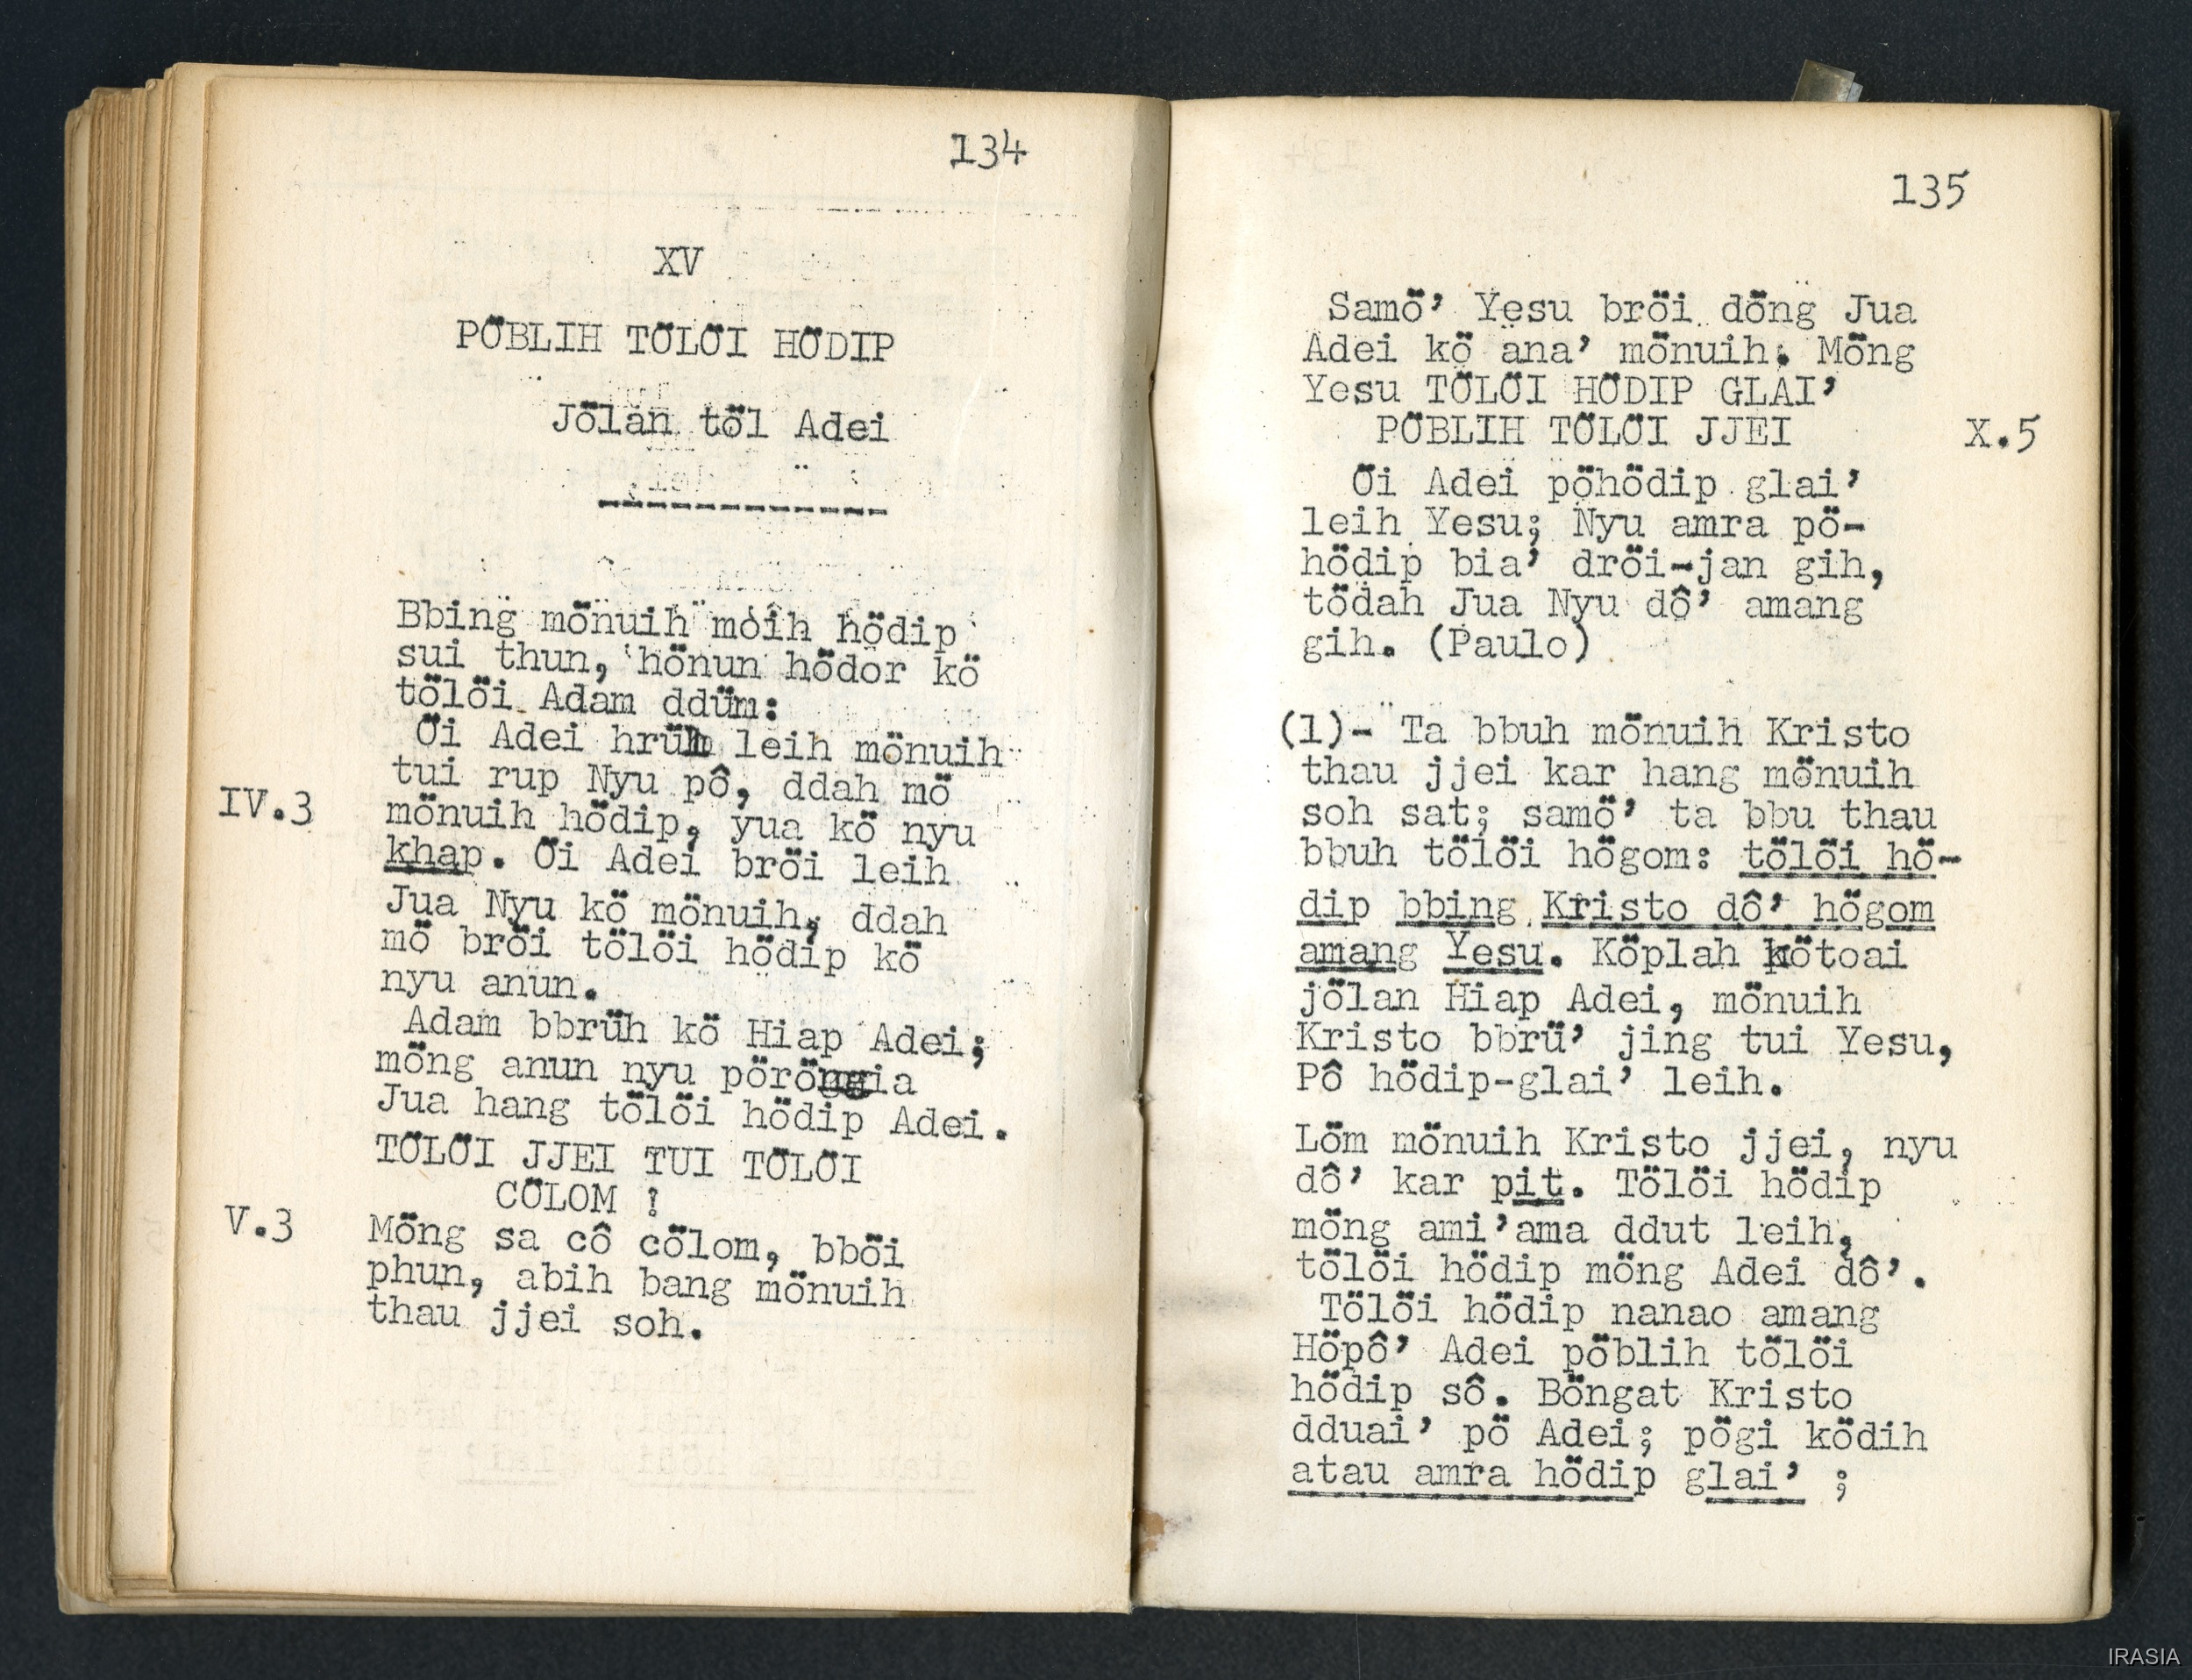 134
XV
PÖBLIH TÖLÖI HÖDIP
Jölan töl Adei
Bbing mönuih möîh hödip
sui thun, hönun hödor kö
tölöi Adam ddüm:
Öi Adei hrüh leih mönuih
tui rup Nyu pô, ddah mö
IV.3 mönuih hödip, yua kö nyu
khap. Öi Adei bröi leih
Jua Nyu kö mönuih, ddah
mö bröi tölöi hödip kö
nyu anun.
Adam bbrüh kö Hiap Adei;
möng anun nyu pöröngia
Jua hang tölöi hödip Adei.
TÖLÖI JJEI TUI TÖLÖI
CÖLOM !
V.3 Möng sa cô cölom, bböi
phun, abih bang mönuih
thau jjei soh.
135
Samö' Yesu bröi döng Jua
Adei kö ana' mönuih. Möng
Yesu TÖLÖI HÖDIP GLAI'
PÖBLIH TÖLÖI JJEI X.5
Öi Adei pöhödip glai'
leih Yesu; Nyu amra pö-
hödip bia' dröi-jan gih,
tödah Jua Nyu dô' amang
gih. (Paulo)
(1)- Ta bbuh mönuih Kristo
thau jjei kar hang mönuih
soh sat; samö' ta bbu thau
bbuh tölöi högom: tölöi hö-
dip bbing Kristo dô' högom
amang Yesu. Köplah kötoai
jölan Hiap Adei, mönuih
Kristo bbrü' jing tui Yesu,
Pô hödip-glai' leih.
Löm mönuih Kristo jjei, nyu
dô' kar pit. Tölöi hödip
möng ami'ama ddut leih,
tölöi hödip möng Adei dô'.
Tölöi hödip nanao amang
Höpô' Adei pöblih tölöi
hödip sô. Böngat Kristo
dduai' pö Adei; pögi ködih
atau amra hödip glai' ;
IRASIA